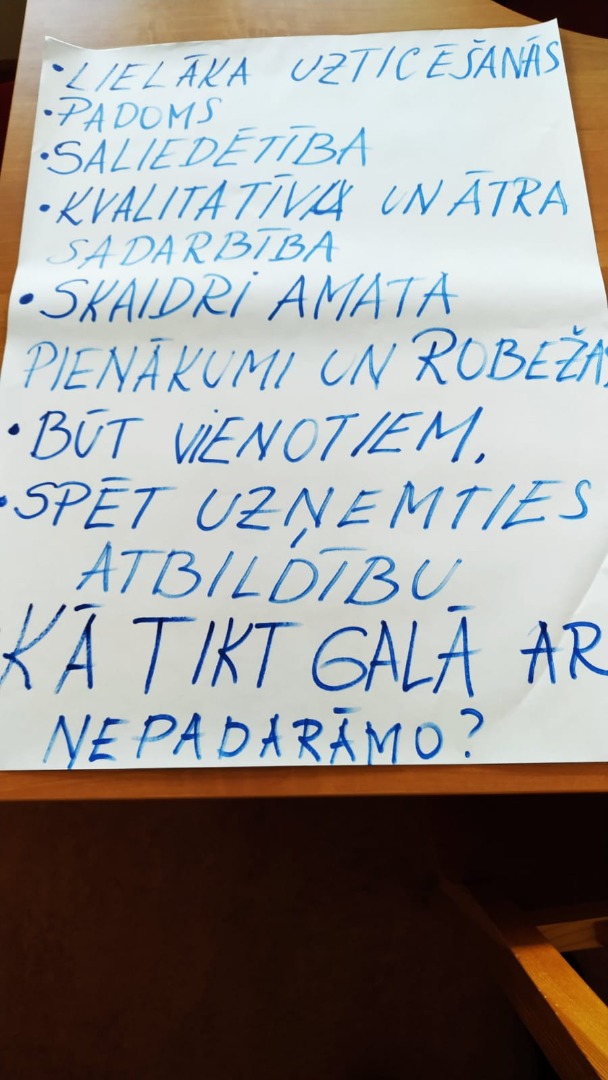 • LIELĀKA UZTICĒŠANĀS
• PADOMS
• SALIEDĒTĪBA
• KVALITATĪVA UN ĀTRA
SADARBĪBA
• SKAIDRI AMATA
PIENĀKUMI UN ROBEŽAS
• BŪT VIENOTIEM,
• SPĒT UZŅEMTIES
ATBILDĪBU
KĀ TIKT GALĀ AR
NEPADARĀMO?